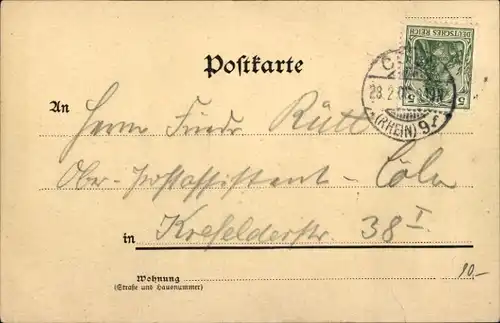 DEUTSCHES REICH
5 5
Postkarte
28.2.
(RHEIN) 9
An
Herrn Friedr. Rütt
Ober-Postassistent - Cöln
in Krefelderstr. 38 I
10.-
Wohnung
(Straße und Hausnummer)